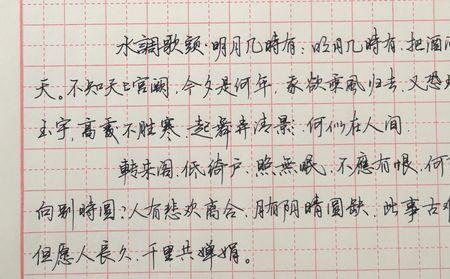 水調歌頭·明月几時有：明月几時有，把酒
天。不知天上宫阙，今夕是何年，我欲乘風归去，又恐
玉宇，高處不胜寒。起舞弄清影，何似在人间
轉朱阁，低绮户，照無眠，不應有恨，何
向别時圓？人有悲欢离合，月有阴晴圆缺，此事古
但愿人長久，千里共婵娟。